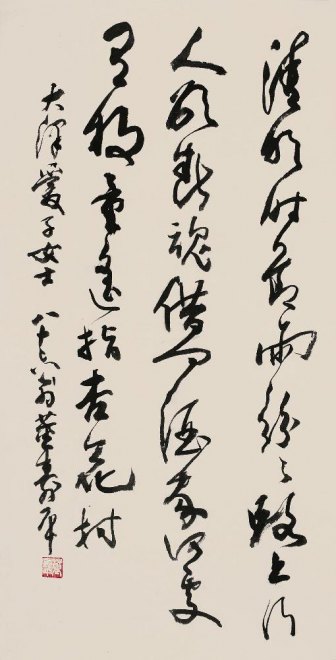 清明時節雨紛々路上行
人欲斷魂借問酒家何處
有牧童遙指杏花村
大澤愛子女士 八十六翁董壽平